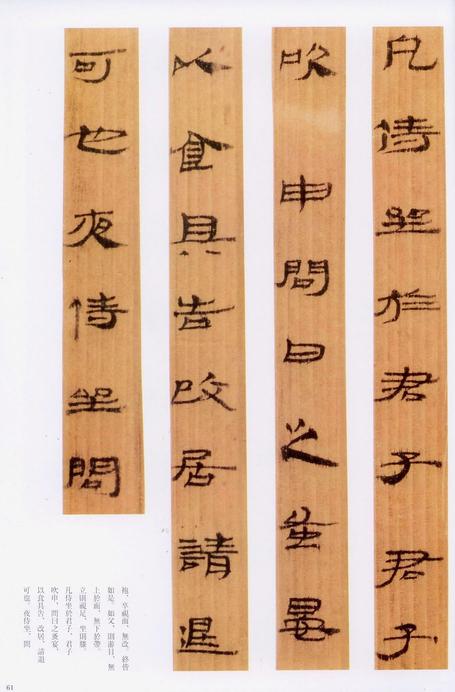 凡侍坐於君子君子
吹申問日之蚤晏
以食具告改居請退
可也夜侍坐問
袍。卒視面，無改。終皆
如是。如父，則游目，無
上於面，無下於帶。
立則視足，坐則膝。
凡侍坐於君子，君子
吹申，問日之蚤晏，
以食具告，改居，請退
可也。夜侍坐，問
61